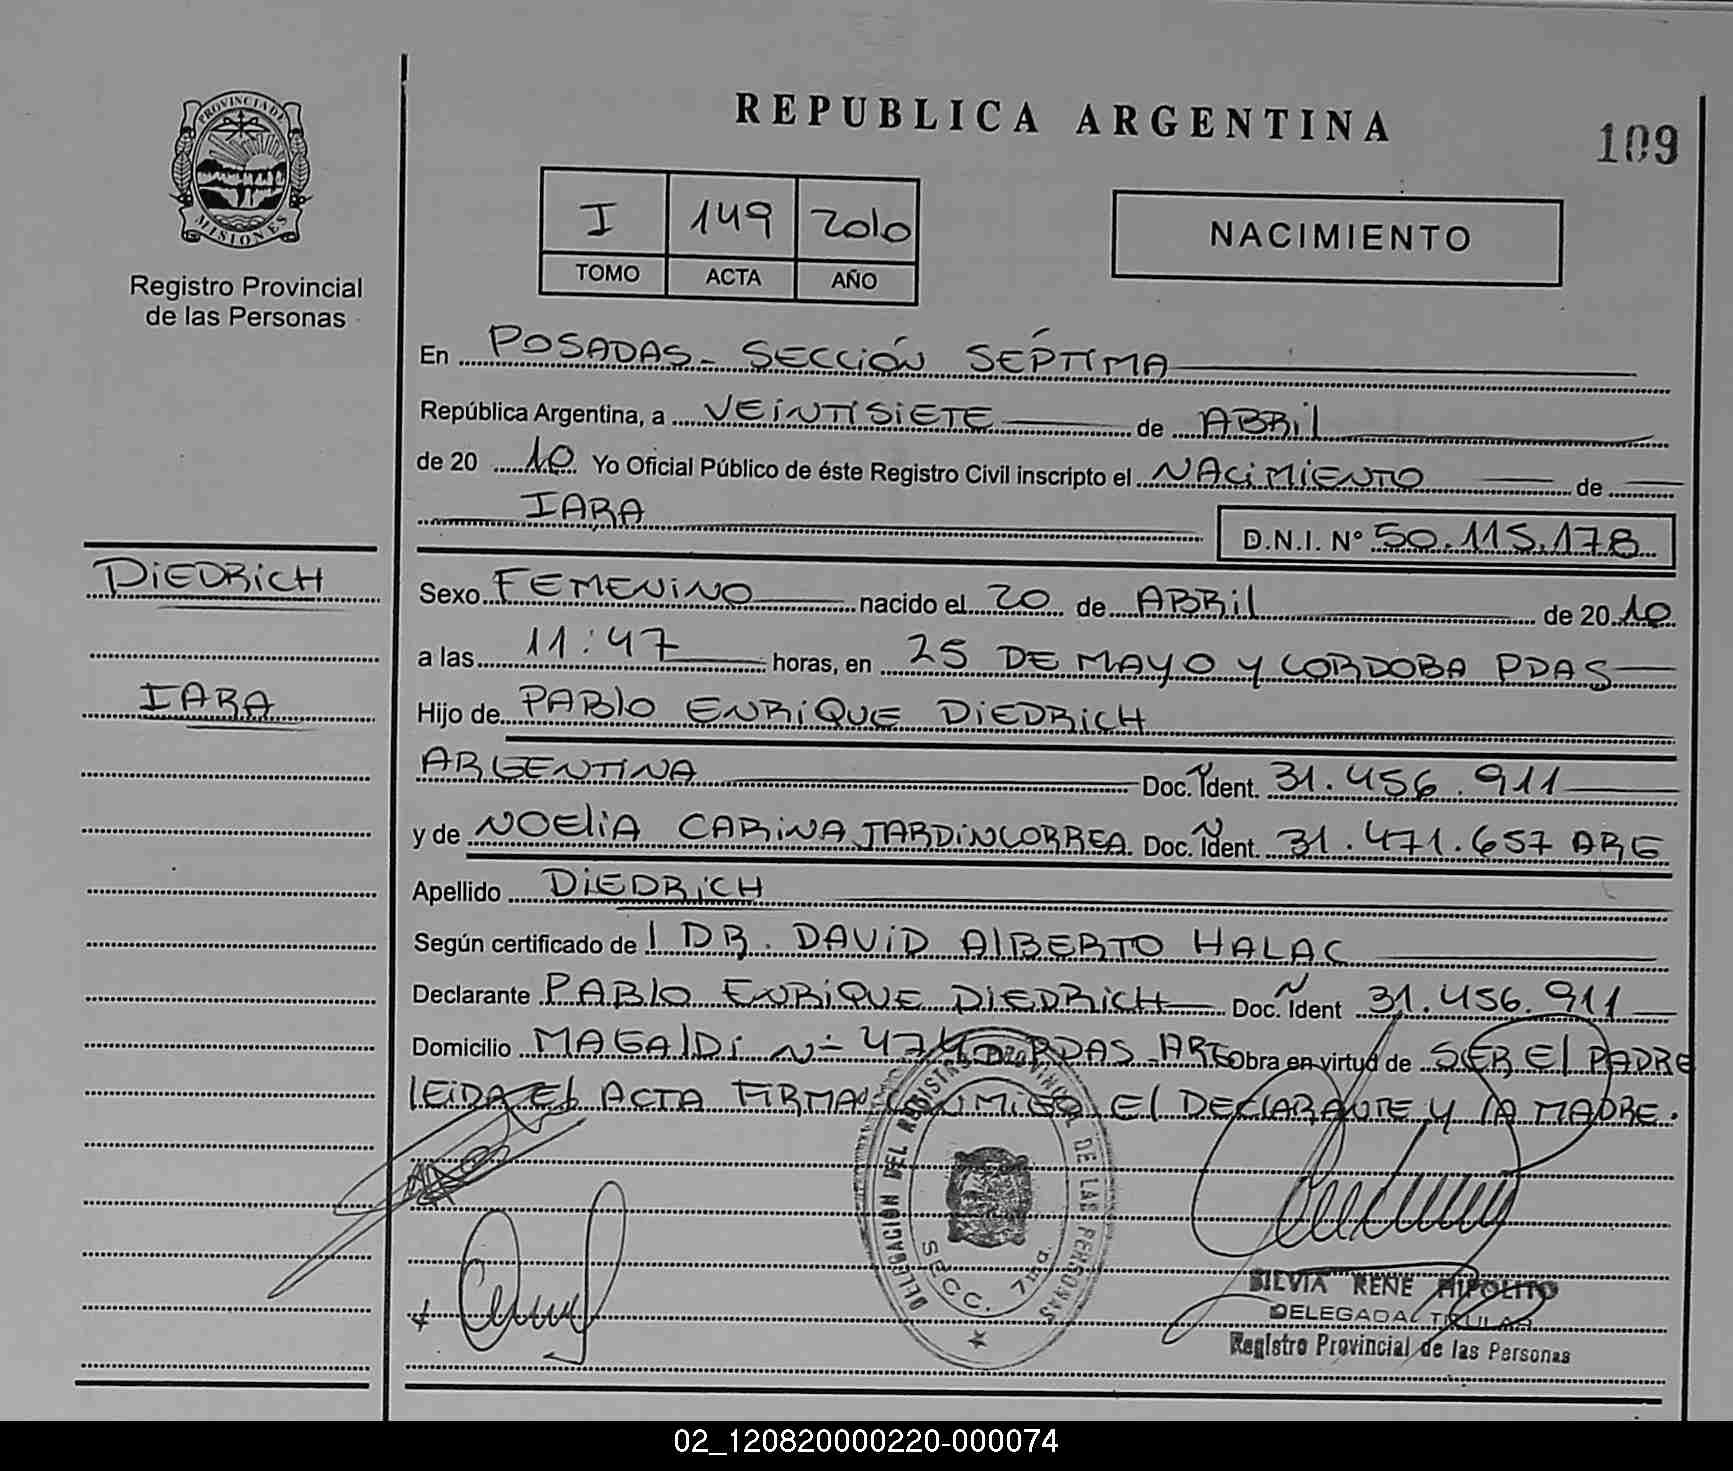 REPUBLICA ARGENTINA
109
PROVINCIA DE
MISIONES
Registro Provincial
de las Personas
I 149 2010
TOMO ACTA AÑO
NACIMIENTO
En POSADAS - SECCIÓN SÉPTIMA
República Argentina, a VEINTISIETE de ABRIL
de 20 10 Yo Oficial Público de éste Registro Civil inscripto el NACIMIENTO de
IARA
D.N.I. N° 50.115.178
DIEDRICH
IARA
Sexo FEMENINO nacido el 20 de ABRIL de 20 10
a las 11:47 horas, en 25 DE MAYO Y CORDOBA PDAS
Hijo de PABLO ENRIQUE DIEDRICH
ARGENTINA Doc. Ident. 31.456.911
y de NOELIA CARINA JARDIN CORREA Doc. Ident. 31.471.657 ARG
Apellido DIEDRICH
Según certificado de l DR. DAVID ALBERTO HALAC
Declarante PABLO ENRIQUE DIEDRICH Doc. Ident 31.456.911
Domicilio MAGALDI N° PDAS - ARG Obra en virtud de SER EL PADRE
LEIDA EL ACTA FIRMAN CONMIGO EL DECLARANTE Y LA MADRE.
DELEGACION DEL REGISTRO PROVINCIAL DE LAS PERSONAS
SECC. 7ma
SILVIA RENE HIPOLITO
DELEGADA TITULAR
Registro Provincial de las Personas
02_120820000220-000074